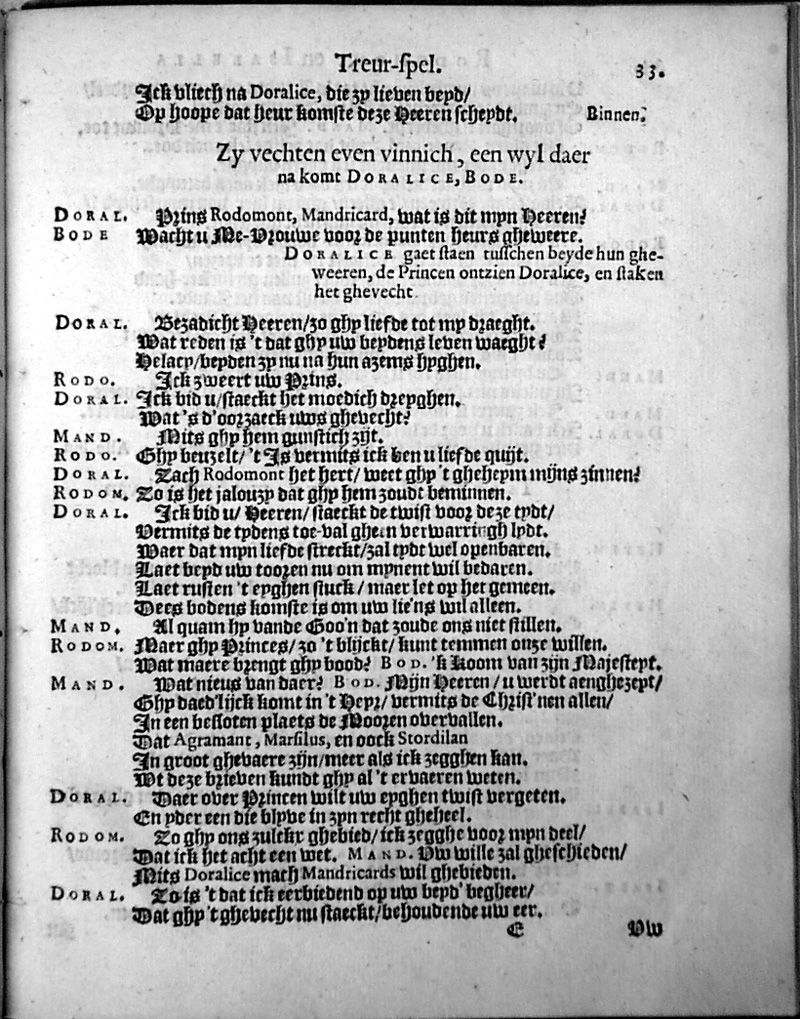 Treur-spel. 33.
Ick vliech na Doralice, die zy lieven beyd/
Op hoope dat heur komste deze Heeren scheydt. Binnen.
Zy vechten even vinnich, een wyl daer
na komt DORALICE, BODE.
DORAL. Prins Rodomont, Mandricard, wat is dit mijn Heeren?
BODE Wacht u Me-Vrouwe voor de punten heurs gheweere.
DORALICE gaet staen tusschen beyde hun ghe-
weeren, de Princen ontzien Doralice, en staken
het ghevecht.
DORAL. Bezadicht Heeren/zo ghy liefde tot my draeght.
Wat reden is 't dat ghy uw beydens leven waeght?
Helacy/beyden zy nu na hun azems hyghen.
RODO. Ick zweert uw Prins.
DORAL. Ick bid u/staeckt het moedich dreyghen.
Wat 's d'oorzaeck uws ghevecht?
MAND. Mits ghy hem gunstich zijt.
RODO. Ghy beuzelt/ 't Is vermits ick ben u liefde quijt.
DORAL. Zach Rodomont het hert/ weet ghy 't gheheym mijns zinnen?
RODOM. Zo is het jalouzy dat ghy hem zoudt beminnen.
DORAL. Ick bid u/ Heeren/ staeckt de twist voor deze tydt/
Vermits de tydens toe-val gheen verwarringh lydt.
Waer dat mijn liefde streckt/zal tydt wel openbaren.
Laet beyd uw tooren nu om mynent wil bedaren.
Laet rusten 't eyghen stuck/ maer let op het gemeen.
Dees bodens komste is om uw lie'ns wil alleen.
MAND. Al quam hy vande Goo'n dat zoude ons niet stillen.
RODOM. Maer ghy Princes/ zo 't blijckt/ kunt temmen onze willen.
Wat maere brengt ghy bood? BOD. 'k Koom van zijn Majesteyt.
MAND. Wat nieus van daer? BOD. Mijn Heeren/ u werdt aengezeyt/
Ghy daed'lijck komt in 't Heyr/ vermits de Christ'nen allen/
In een besloten plaets de Mooren overvallen.
Dat Agramant, Marsilus, en oock Stordilan
In groot ghevaere zijn/meer als ick zegghen kan.
Wt deze brieven kundt ghy al 't ervaeren weten.
DORAL. Daer over Princen wilt uw eyghen twist vergeten.
En yder een die blyve in zyn recht gheheel.
RODOM. Zo ghy ons zulckx ghebied/ ick zegghe voor mijn deel/
Dat ick het acht een wet. MAND. Uw wille zal gheschieden/
Mits Doralice mach Mandricards wil ghebieden.
DORAL. Zo is 't dat ick eerbiedend op uw beyd' begheer/
Dat ghy 't ghevecht nu staeckt/behoudende uw eer.
E Uw